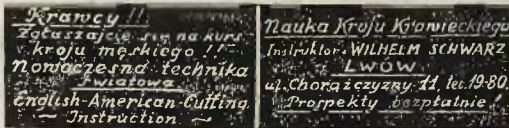 Krawcy!!
Zgłaszajcie się na kurs
kroju męskiego!!
Nowoczesna technika
światowa
English-American-Cutting
Instruction.
Nauka Kroju Krawieckiego
Instruktor. WILHELM SCHWARZ
LWÓW
ul. Chorążczyzny 11, tel. 19-80.
Prospekty bezpłatnie!